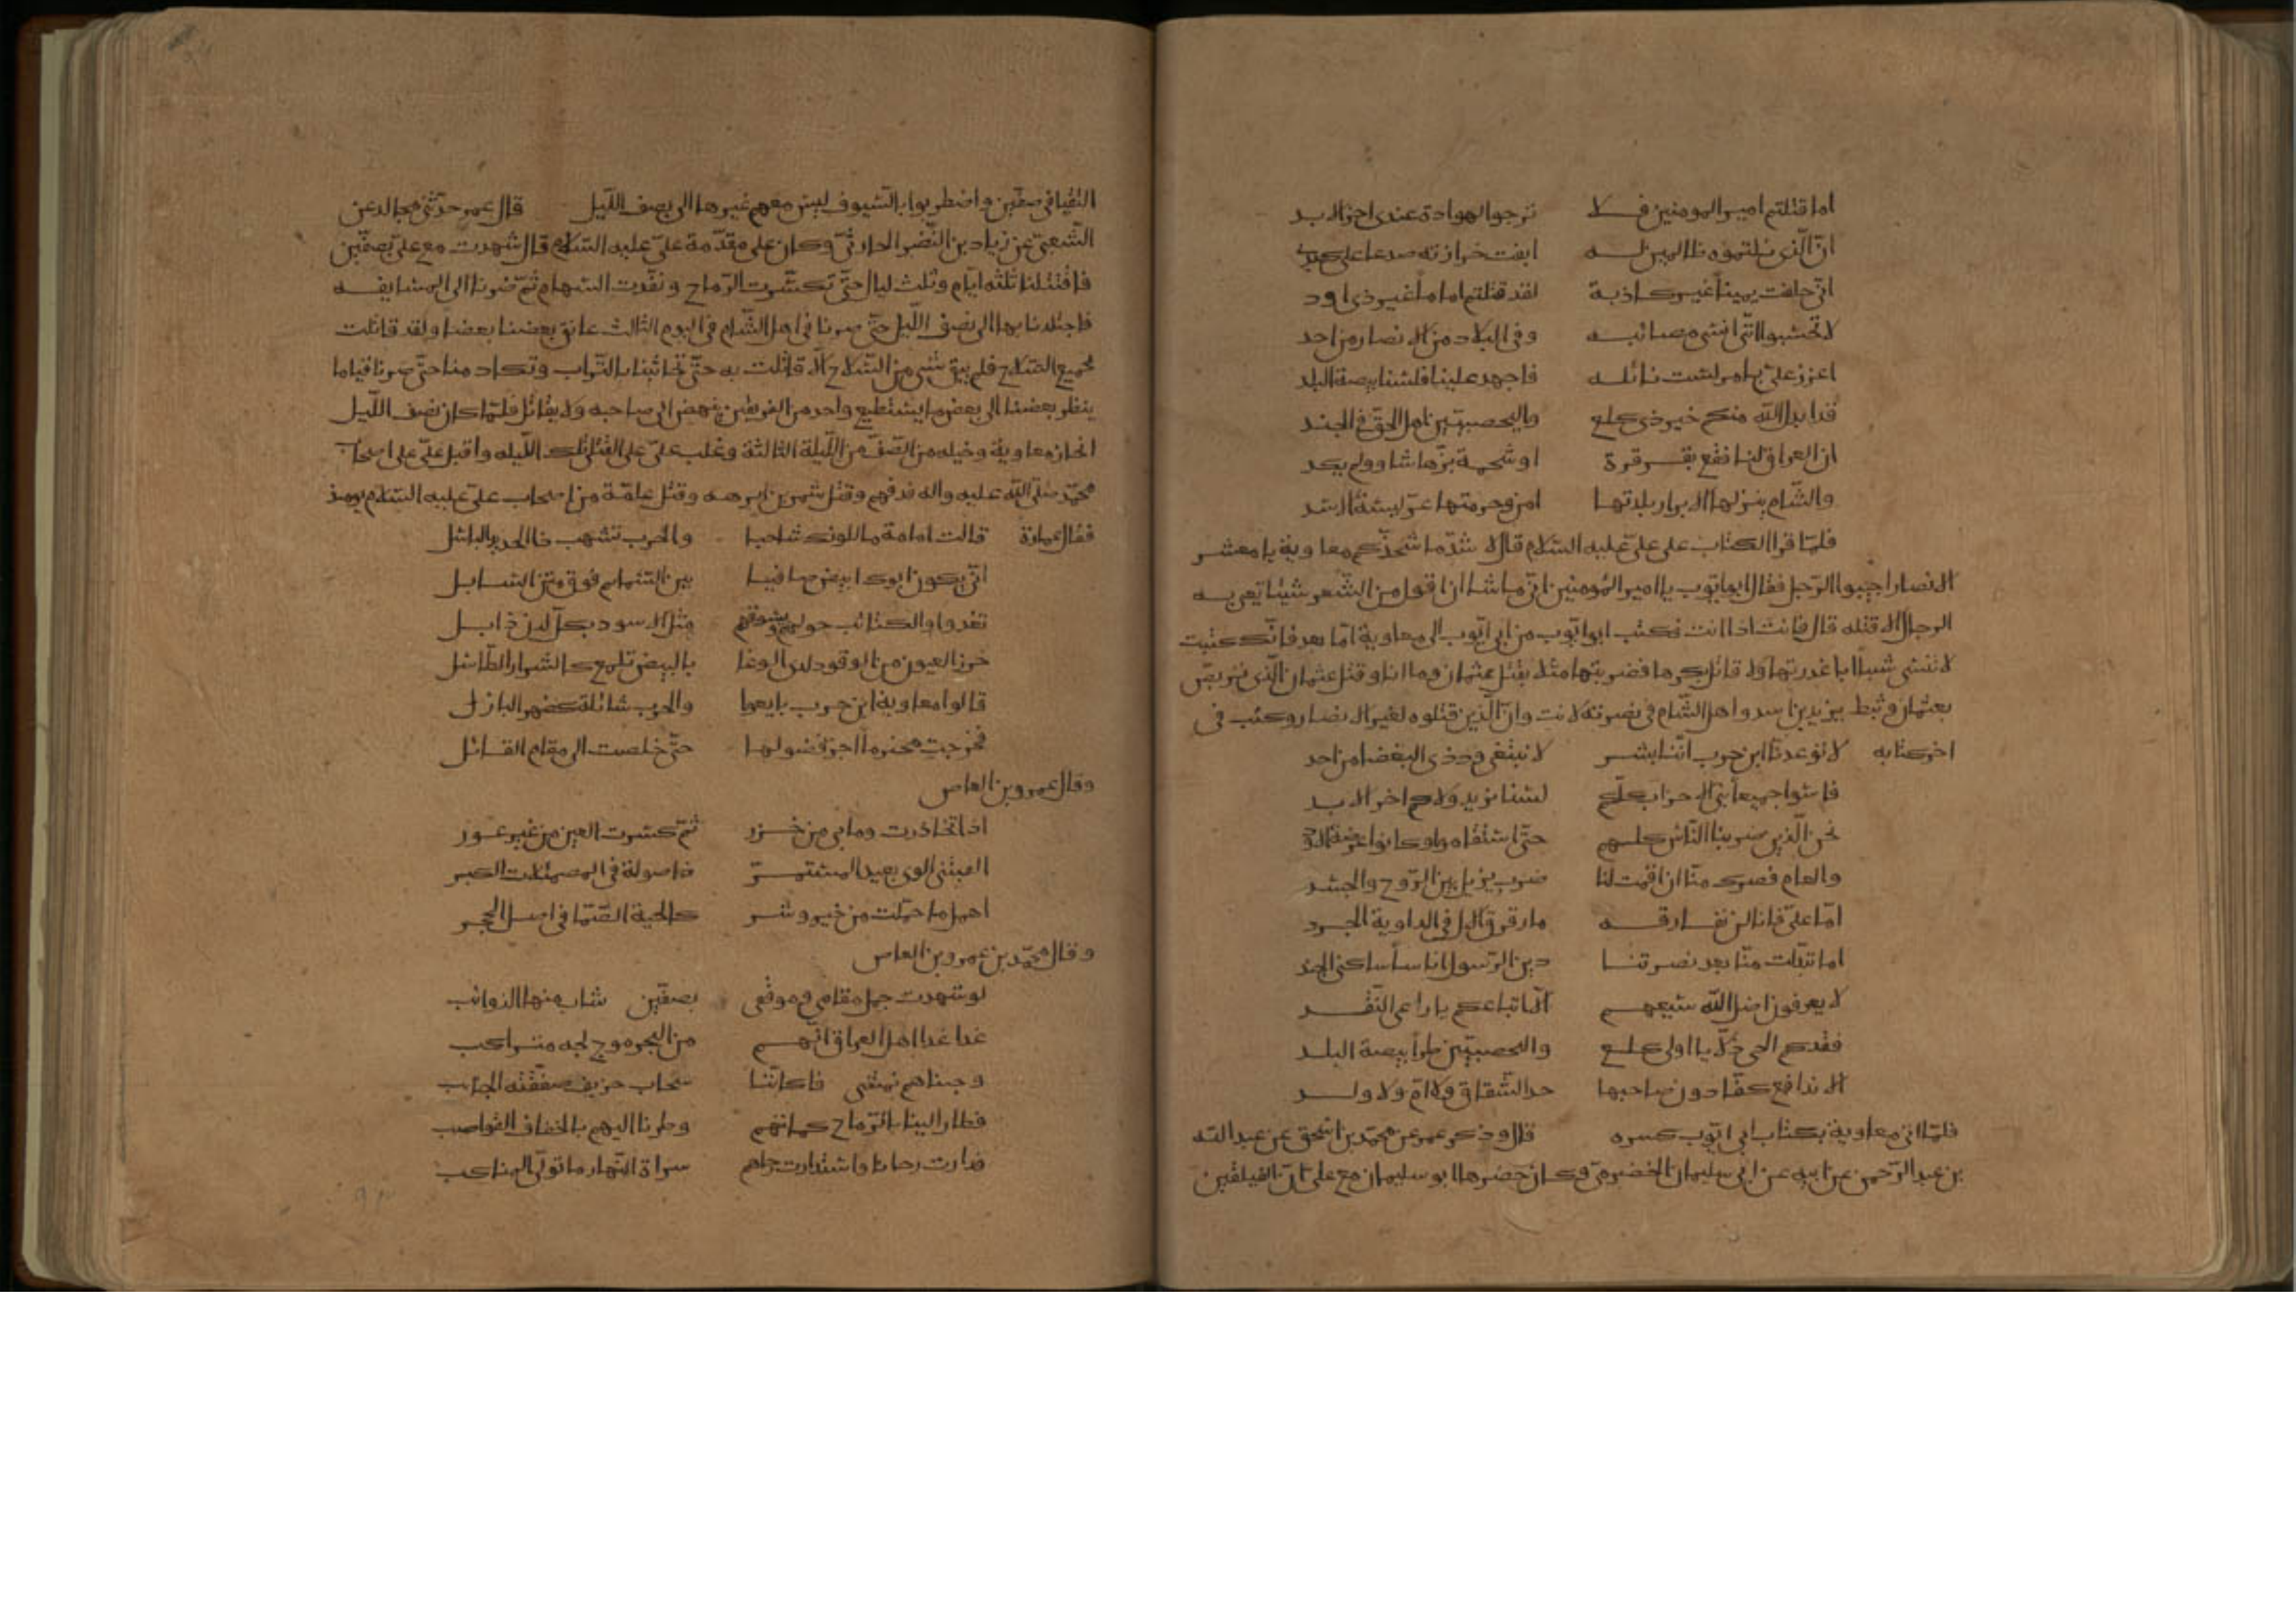 اما قتلتم امير المومنين فلا ترجوا الهوادة عندى اخر الابد
ان الذى نلتموه ظالمين له ابقت خزازته صدعا على كبدى
انى حلفت يمينا غير كاذبة لقد قتلتم اماما غير ذى اود
لا تحسبوا اننى انسى مصائبه وفى البلاد من الانصار من احد
اعزز على بامر لست نائله فاجهد علينا فلسنا بيضة البلد
قد ابدل الله منكم خير ذى كلع واليحصبيين اهل الحق فى الجند
ان العراق لنا فقع بقرقرة او شحمة بزها شاو ولم يكد
والشام ينزلها الابرار بلدتها امن وحومتها عريسة الاسد
فلما قرا الكتاب على على عليه السلام قال لا شد ما شحذكم معاوية يا معشر
الانصار اجيبوا الرجل فقال ابو ايوب يا امير المومنين انى ما اشا ان اقول من الشعر شيئا يعيى به
الرجال الا قلته قال فانت اذا انت فكتب ابو ايوب من ابى ايوب الى معاوية اما بعد فانك كتبت
لا تنسى شيبا ابا عذرتها ولا قاتل بكرها فضربتها مثلا بقتل عثمان وما انا وقتل عثمان ان الذى تربص
بعثمان وثبط يزيد بن اسد واهل الشام فى نصرته لانت وان الذين قتلوه لغير الانصار وكتب فى
اخر كتابه لا توعدنا ابن حرب اننا بشر لا نبتغى ود ذى البغضا من احد
فاسعوا جميعا بنى الاحزاب كلكم لسنا نريد ولاكم اخر الابد
نحن الذين ضربنا الناس كلهم حتى استقاموا وكانوا
والعام قصرك منا ان اقمت لنا ضرب يزيل بين الروح والجسد
اما على فانا لن نفارقه ما رقرق الال فى الداوية الجرد
اما تبدلت منا بعد نصرتنا دين الرسول اناسا ساكنى الجند
لا يعرفون اضل الله سعيهم الا اتباعكم يا راعى النقد
فقدكم الحى يا اولى كلع واليحصبيين طرا بيضة البلد
الا ندافع كفا دون صاحبها حد الشقاق ولا ام ولا ولد
فلما اتى معاوية بكتاب ابى ايوب كسره قال وذكر عمر عن محمد بن اسحق عن عبد الله
بن عبد الرحمن عن ابيه عن ابى سليمان الحضرمى وكان حضرها ابو سليمان مع على ان الفيلقين
التقيا فى صفين واضطربوا بالسيوف ليس معهم غيرها الى نصف الليل قال عمر حدثنى مجالد عن
الشعبى عن زياد بن النضر الحارثى وكان على مقدمة على عليه السلام قال شهدت مع على بصفين
فاقتتلنا ثلثة ايام وثلث ليال حتى تكسرت الرماح ونفدت السهام ثم صرنا الى المسايفه
فاجتلدنا بها الى نصف الليل حتى صرنا فى اهل الشام فى اليوم الثالث عانق بعضنا بعضا ولقد قاتلت
بجميع السلاح فلم يبق شى من السلاح الا قاتلت به حتى تحاثينا بالتراب وتكادمنا حتى صرنا قياما
ينظر بعضنا الى بعض ما يستطيع واحد من الفريقين ينهض الى صاحبه ولا يقاتل فلما كان نصف الليل
انحاز معاوية وخيله من الصف من الليلة الثالثة وغلب على على القتلى تلك الليله واقبل على على اصحاب
محمد صلى الله عليه واله فدفنهم وقتل شمر بن ابرهه وقتل عامة من اصحاب على عليه السلام يومئذ
فقال عمارة قالت امامة ما للونك شاحبا والحرب تشحب ذا الحديد الباسل
انى يكون ابوك ابيض صافيا بين السمايم فوق متن السابل
تغدوا والكتائب حوله ويسوقهم مثل الاسود بكل لدن ذابل
خزر العيون من الوقود لدى الوغا بالبيض تلمع كالشرار الطاسل
قالوا معاوية ابن حرب بايعوا والحرب شائلة كظهر البازل
فخرجت محتزما اجر فضولها حتى خلصت الى مقام القاتل
وقال عمرو بن العاص
اذا تخازرت وما بى من خزر ثم كسرت العين من غير عور
الفيتنى الوى بعيد المستمر ذا صولة فى المصمئلات الكبر
احمل ما حملت من خير وشر كالحية الصما فى اصل الحجر
وقال محمد بن عمرو بن العاص
لو شهدت جمل مقامى وموقفى بصفين شاب منها الذوائب
غدا غدا اهل العراق انهم من البحر موج لجه متراكب
وجيناهم نمشى فاكاننا سحاب خريف صفقته الجنائب
فطار الينا بالرماح كماتهم وطرنا اليهم بالخفاف القواضب
فدارت رحانا واستدارت رحاهم سراة النهار ما تولى المناكب